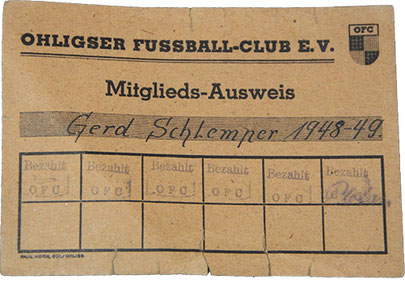 OFC
OHLIGSER FUSSBALL-CLUB E.V.
Mitglieds-Ausweis
Gerd Schlemper 1948-49.
Bezahlt Bezahlt Bezahlt Bezahlt Bezahlt Bezahlt
OFC OFC OFC OFC OFC